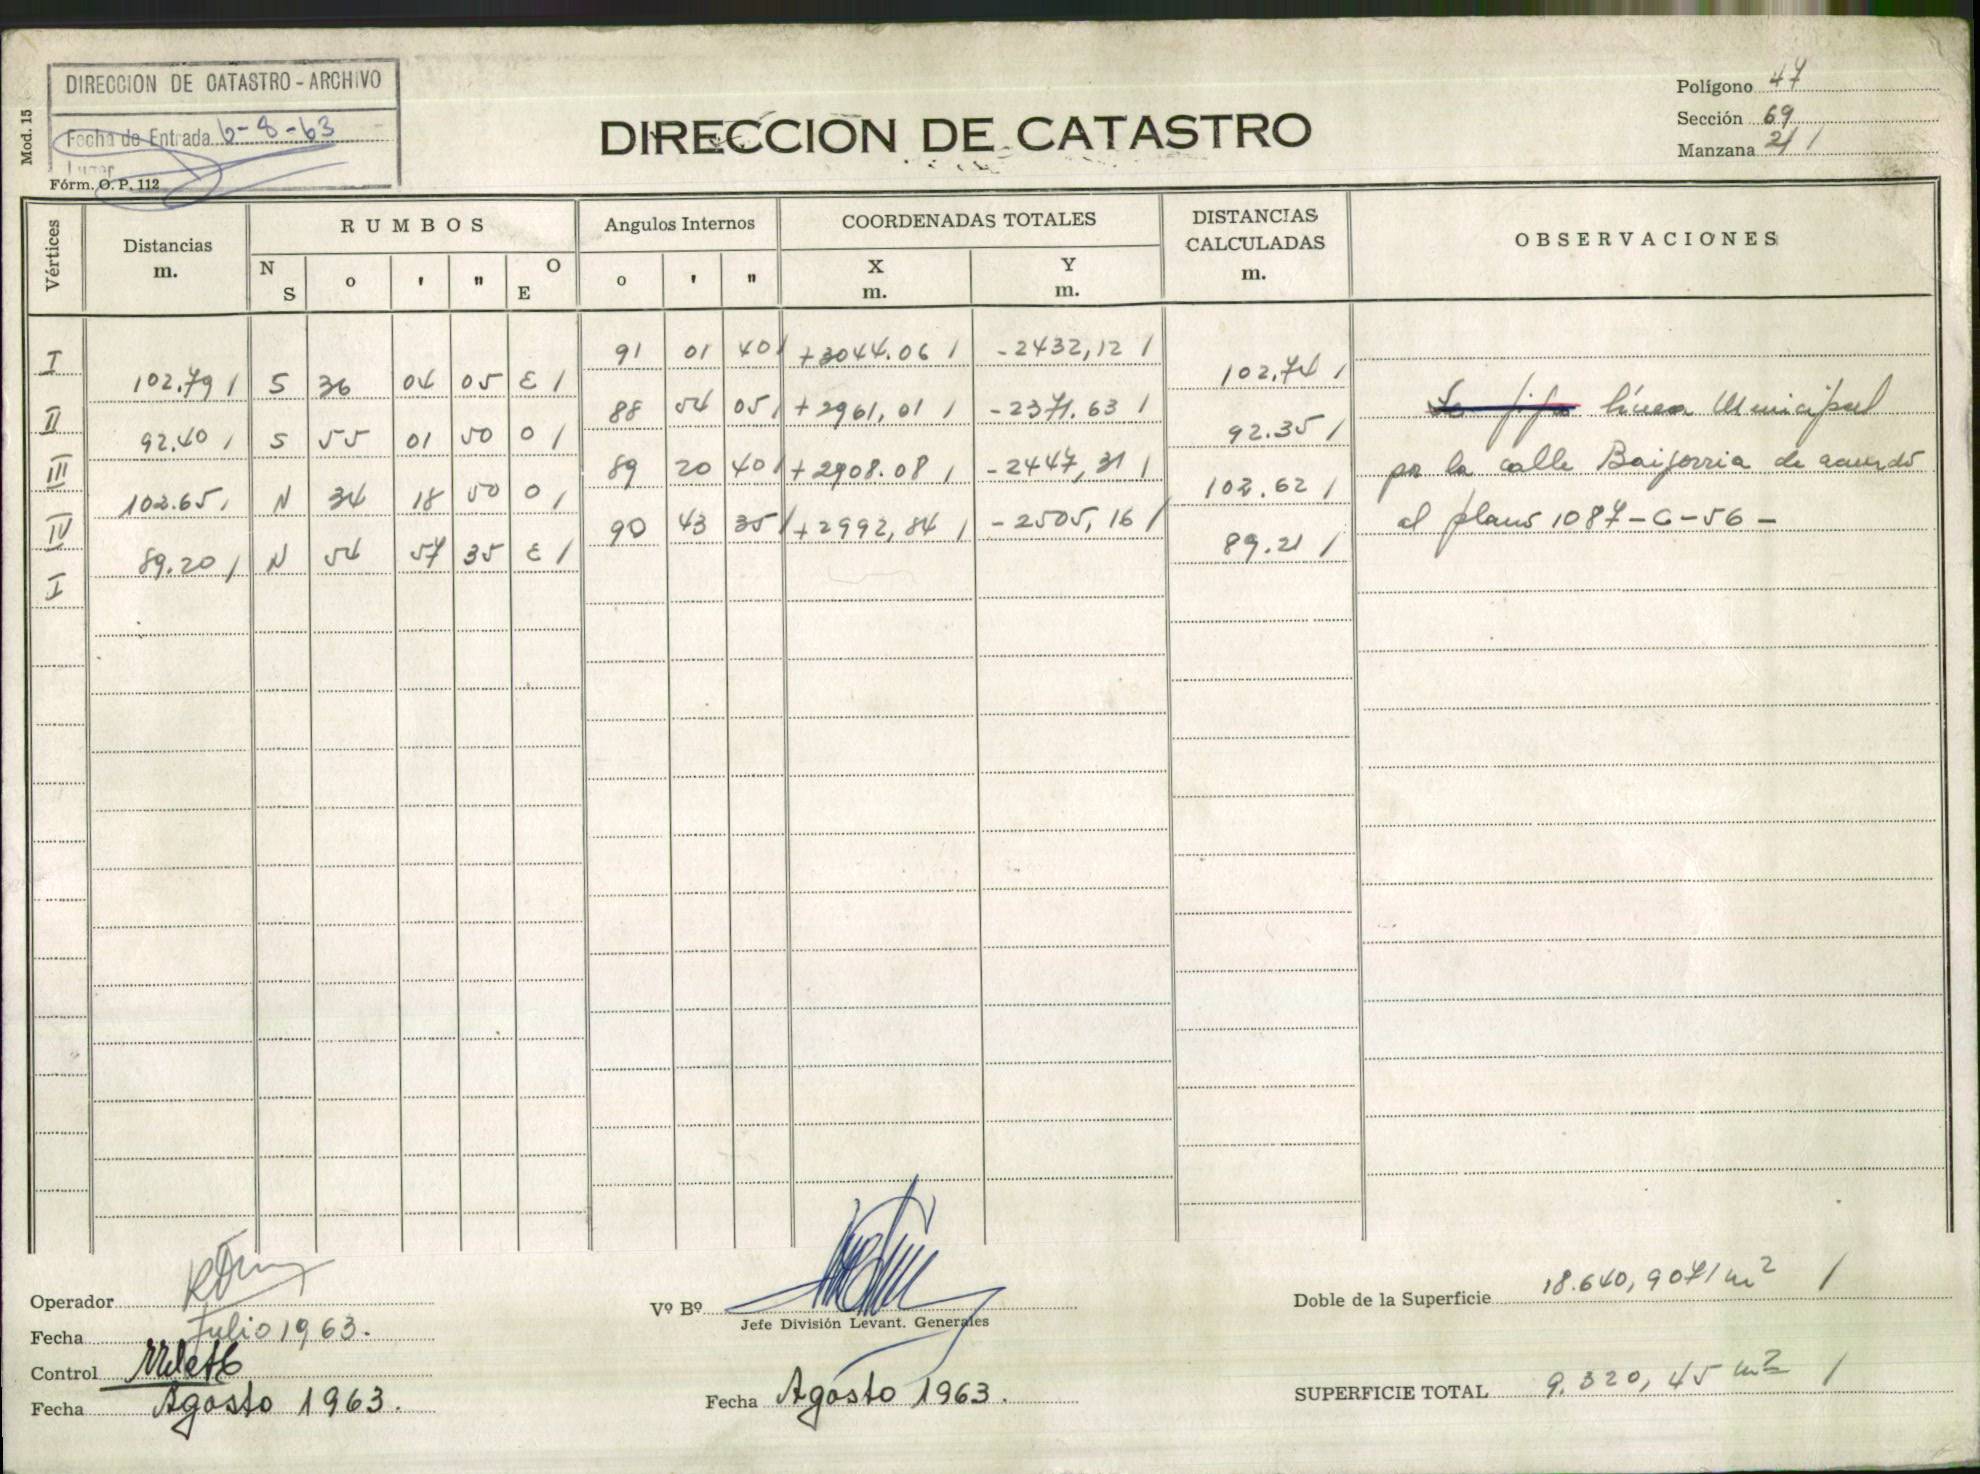 DIRECCION DE CATASTRO - ARCHIVO
Fecha de Entrada 6-8-63
Lugar
Mod. 15
Fórm. O. P. 112
DIRECCION DE CATASTRO
Polígono 47
Sección 69
Manzana 21 /
Vértices Distancias m. RUMBOS N S o ' " O E Angulos Internos o ' " COORDENADAS TOTALES X m. Y m. DISTANCIAS CALCULADAS m. OBSERVACIONES
I 91 01 40 / +3044.06 / -2432,12 /
102.79 / S 36 04 05 E / 102.74 /
II 88 54 05 / +2961,01 / -2371.63 / línea Municipal
92.40 / S 55 01 50 O / 92.35 /
III 89 20 40 / +2908.08 / -2447,31 / por la calle Baigorria de acuerdo
102.65 / N 34 18 50 O / 102.62 /
IV 90 43 35 / +2992,84 / -2505,16 / al plano 1087-C-56-
89.20 / N 54 57 35 E / 89.21 /
I
Operador
Fecha Julio 1963.
Control
Fecha Agosto 1963.
Vº Bº
Jefe División Levant. Generales
Fecha Agosto 1963.
Doble de la Superficie 18.640,9071 m2 /
SUPERFICIE TOTAL 9.320,45 m2 /